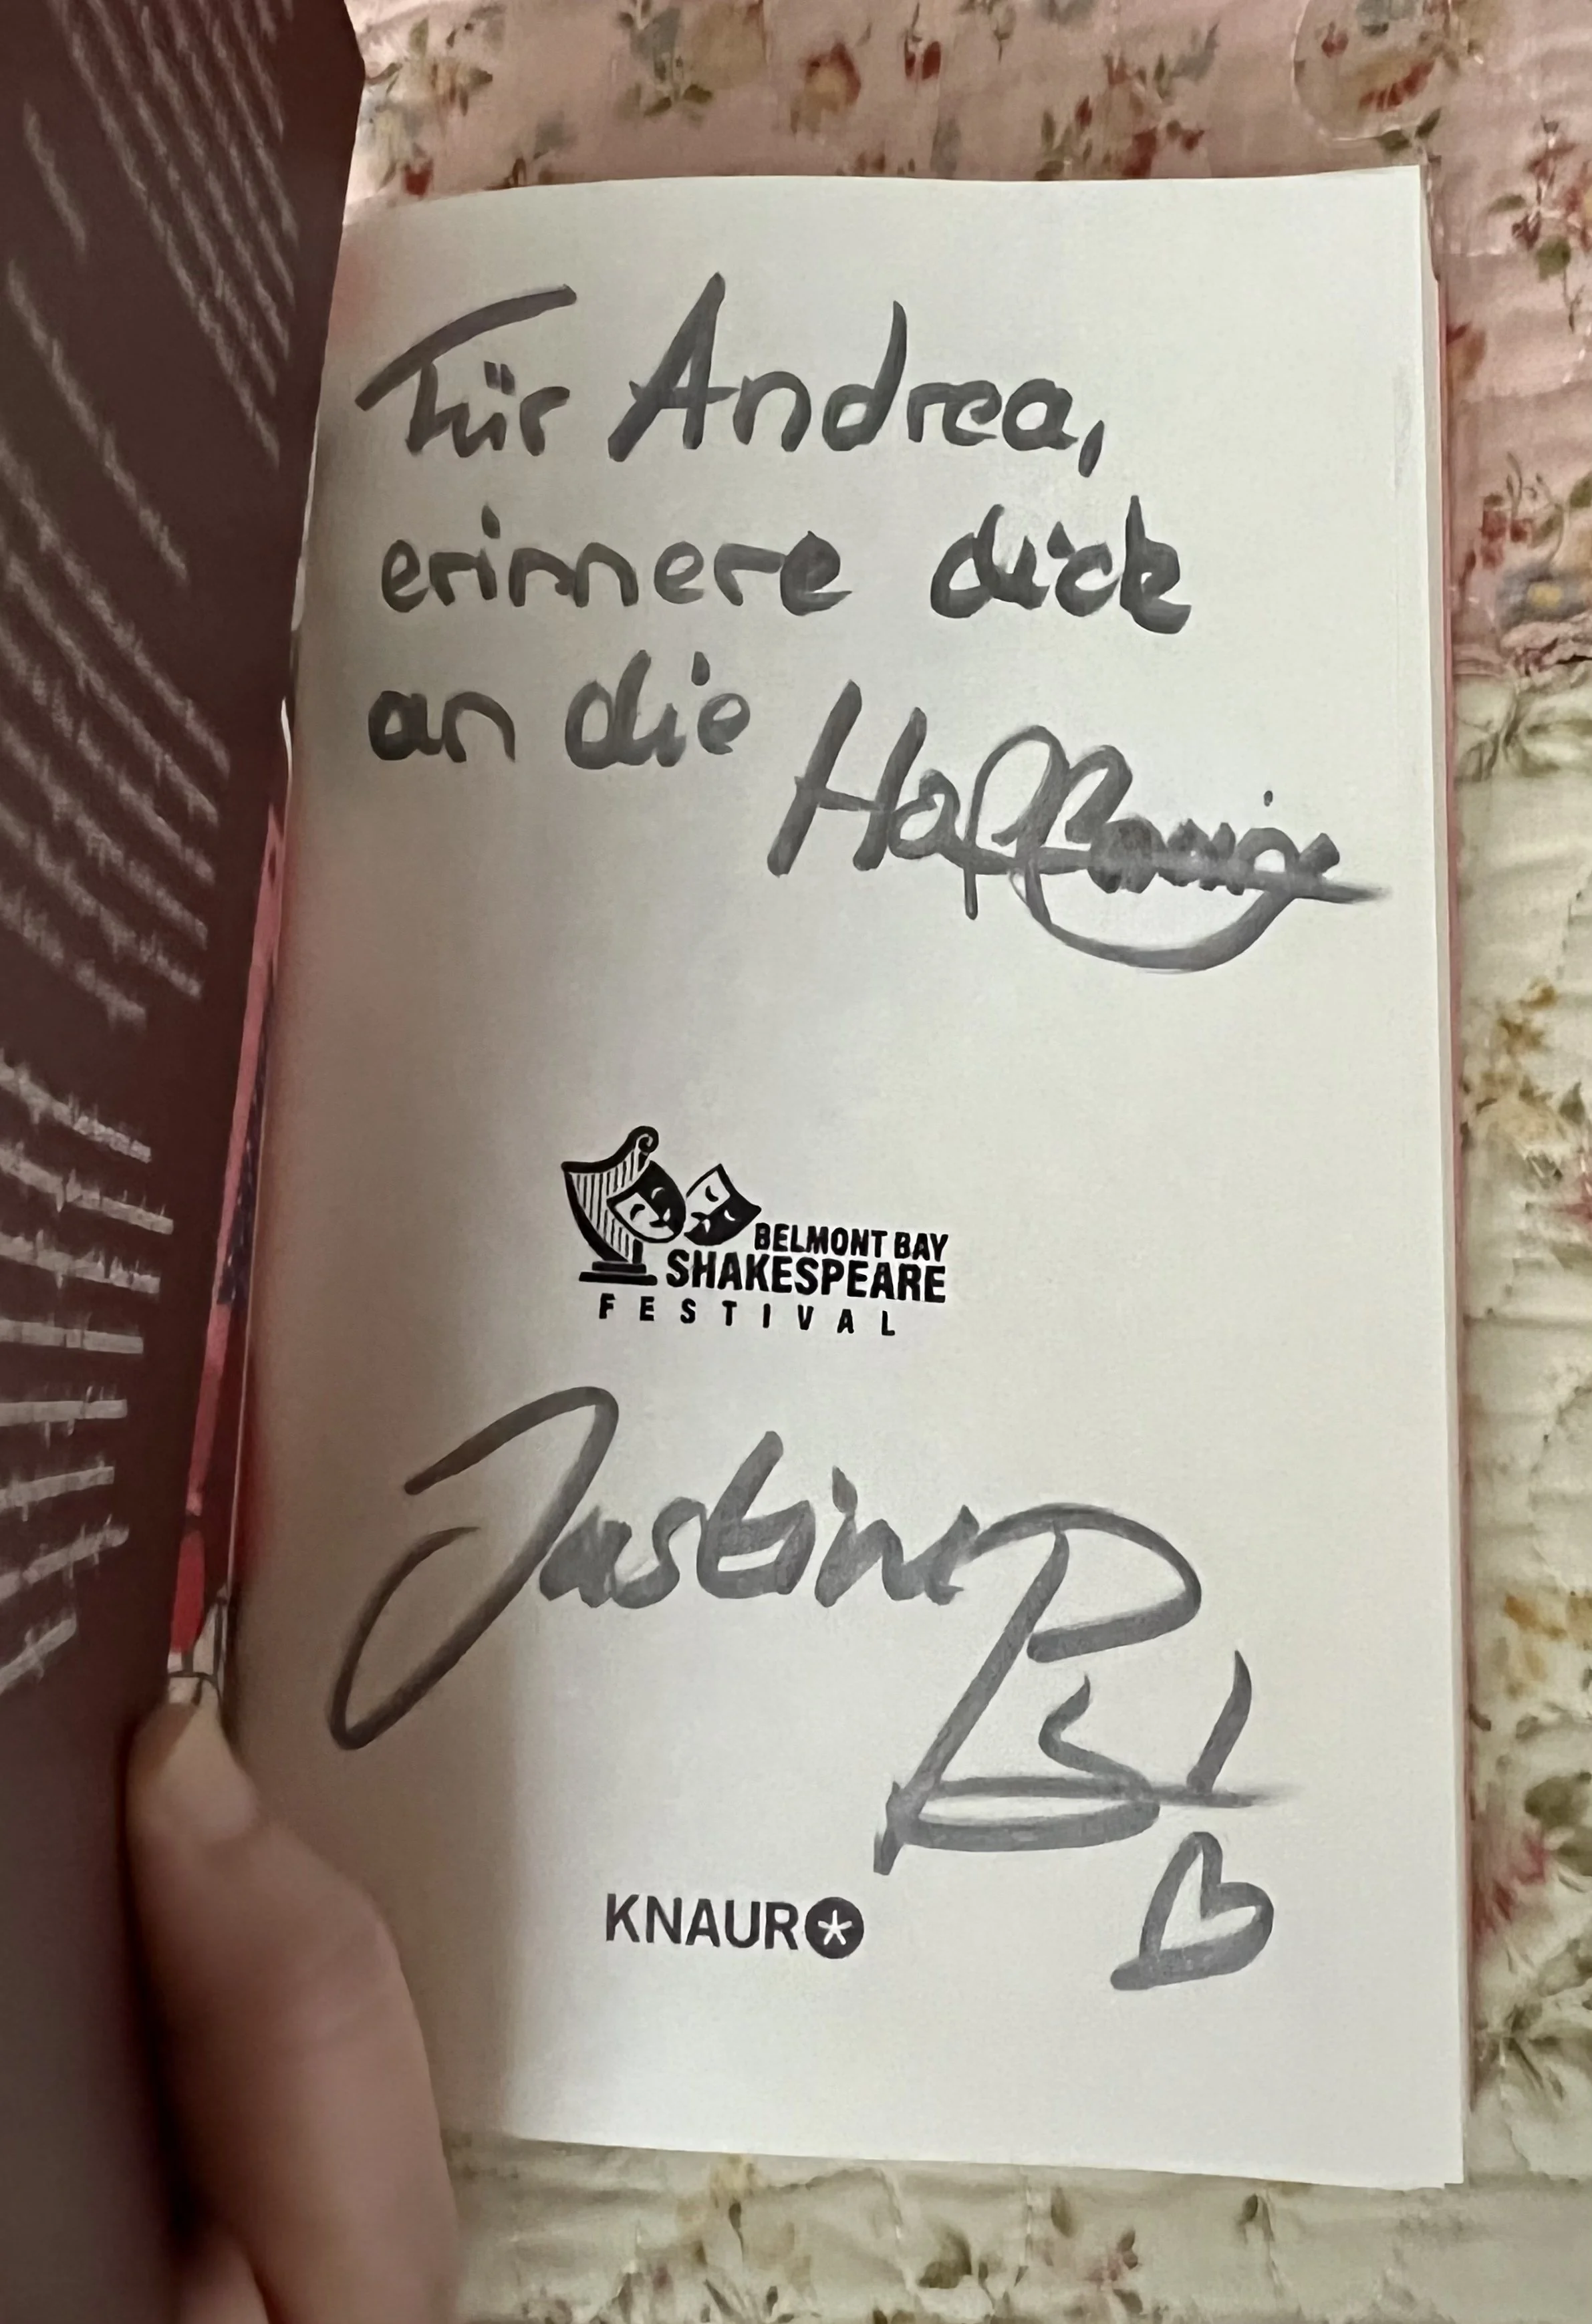 Für Andrea,
erinnere dich
an die Hoffnung
BELMONT BAY
SHAKESPEARE
FESTIVAL
Justine
Pust
KNAUR